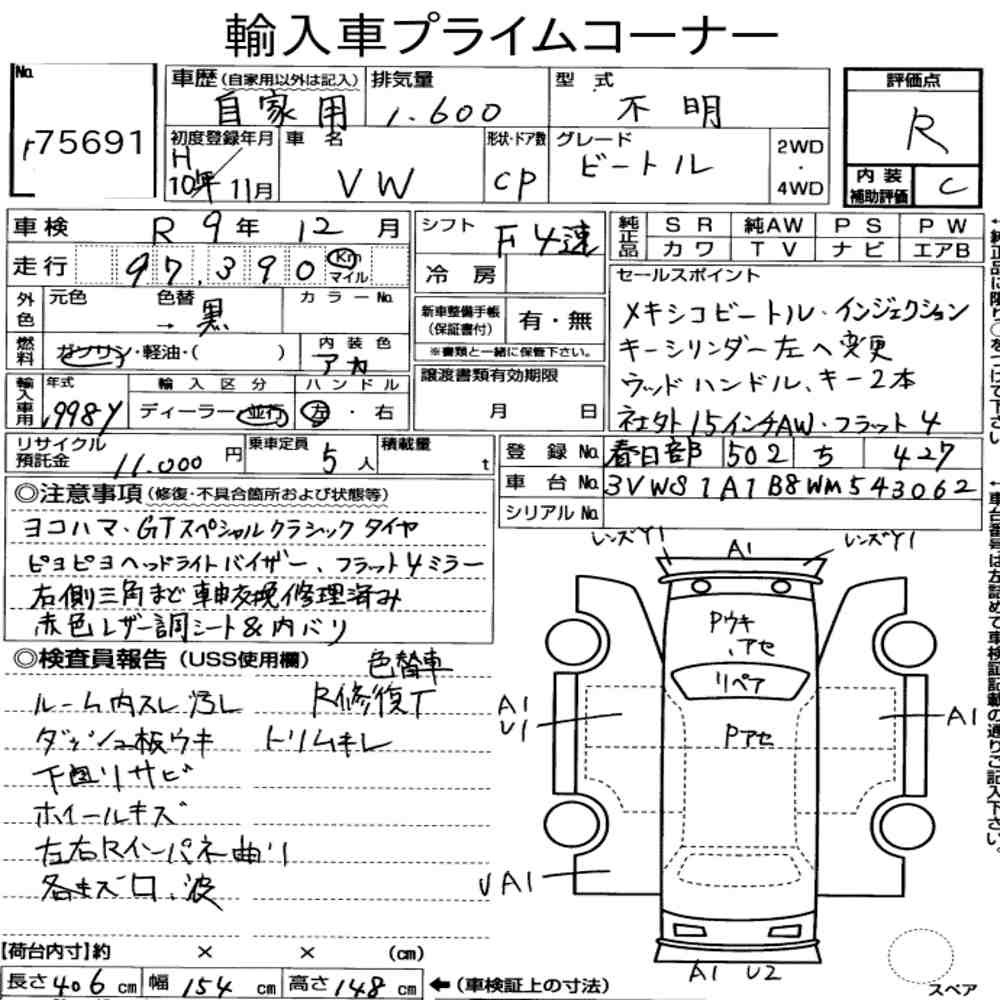 輸入車プライムコーナー
No. 75691
車歴(自家用以外は記入) 自家用
排気量 1.600
型式 不明
評価点 R
初度登録年月 H10年11月
車名 VW
形状・ドア数 CP
グレード ビートル
2WD・4WD
内装補助評価 C
車検 R 9年 12月
シフト F4速
純正品 SR 純AW PS PW
カワ TV ナビ エアB
走行 97,390 Km マイル
冷房
外色 元色 色替 → 黒 カラーNo.
新車整備手帳(保証書付) 有・無
※書類と一緒に保管下さい。
燃料 ガソリン・軽油・( )
内装色 アカ
輸入車用 年式 1998y
輸入区分 ディーラー・並行
ハンドル 左・右
譲渡書類有効期限
月 日
セールスポイント
メキシコビートル・インジェクション
キーシリンダー左へ変更
ウッドハンドル、キー2本
社外15インチAW・フラット4
リサイクル預託金 11.000円
乗車定員 5人
積載量 t
登録No. 春日部 502 ち 427
車台No. 3VWS1A1B8WM543062
シリアルNo.
◎注意事項(修復・不具合箇所および状態等)
ヨコハマ・GTスペシャルクラシックタイヤ
ピヨピヨヘッドライトバイザー、フラット4ミラー
右側三角まど 車由交換修理済み
赤色レザー調シート&内バリ
◎検査員報告(USS使用欄) 色替車
ルーム内スレ汚レ R修復T
ダッシュ板ウキ トリムキレ
下回リサビ
ホイールキズ
左右Rインパネ曲リ
各キズ凹、波
レンズY1 A1 レンズY1
Pウキ、アセ
リペア
Pアセ
A1
U1
A1
UA1
A1 U2
スペア
【荷台内寸】約 × × (cm)
長さ406cm 幅154cm 高さ148cm ←(車検証上の寸法)
↑純正品に限り○をつけて下さい
↑車台番号は左詰めで車検証記載の通りご記入下さい。